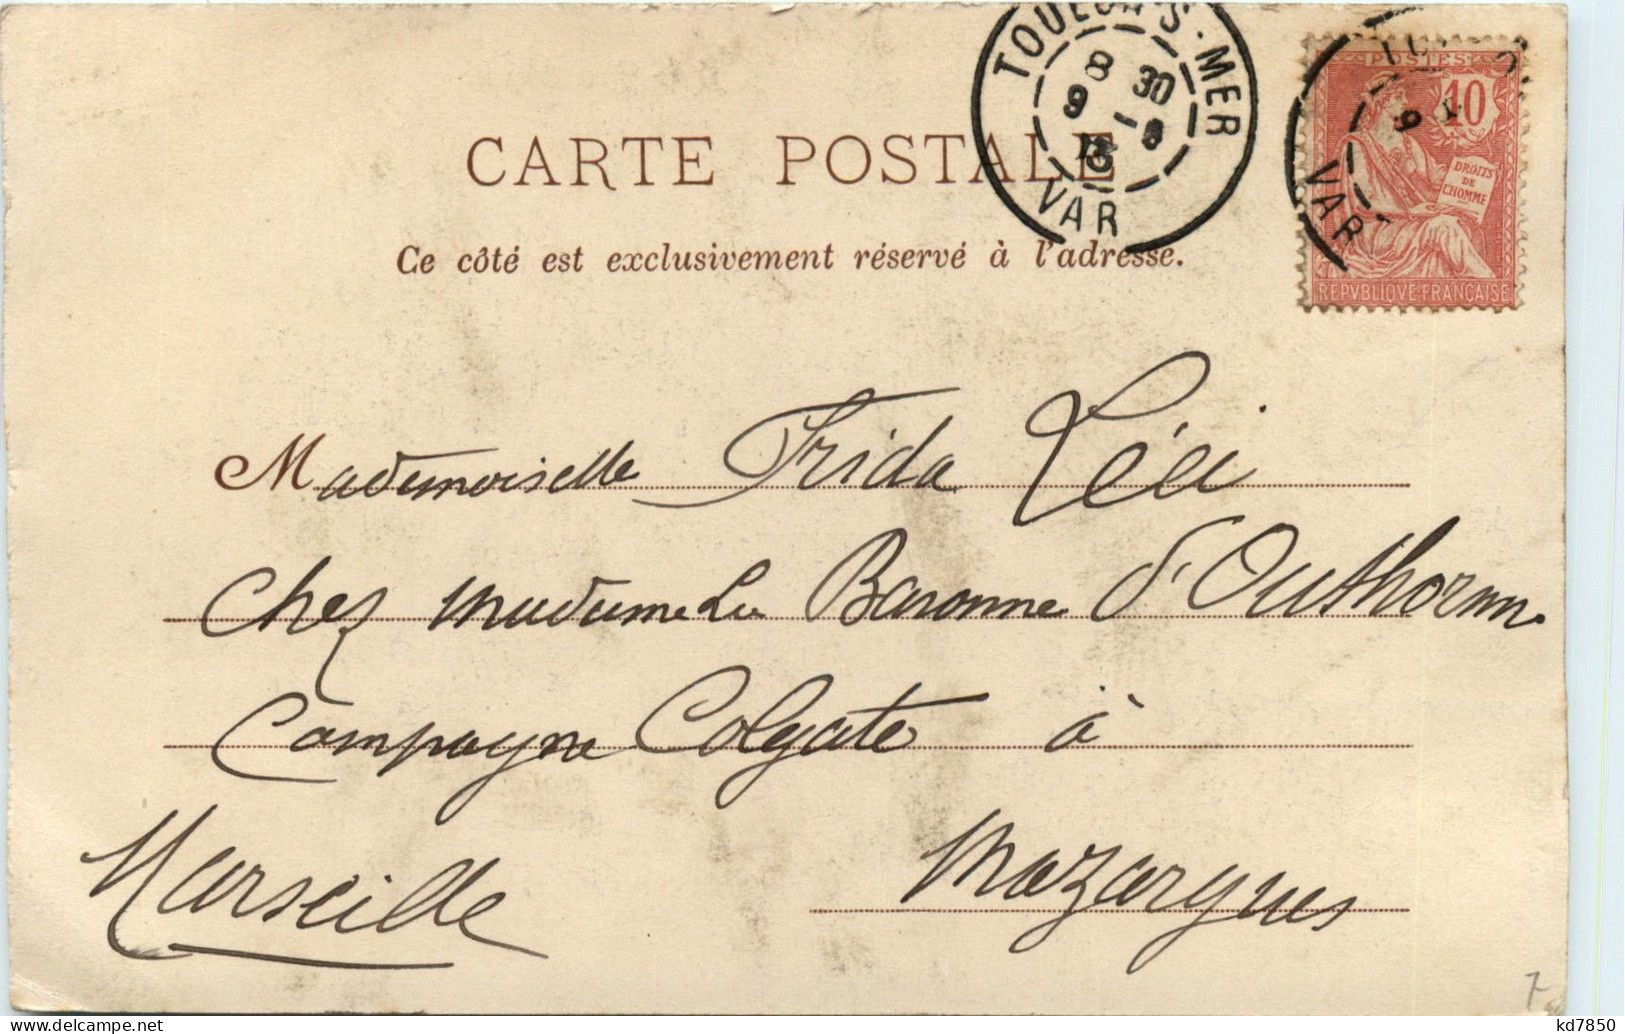 TOULON S. MER
8 30
9 -8
VAR
POSTES
10
DROITS
DE
L'HOMME
REPVBLIQVE FRANÇAISE
VAR
CARTE POSTALE
Ce côté est exclusivement réservé à l'adresse.
Mademoiselle Frida Léci
Chez madame La Baronne d'Outhornn
Campagne Colgate à
Marseille Mazargues
7
kd7850